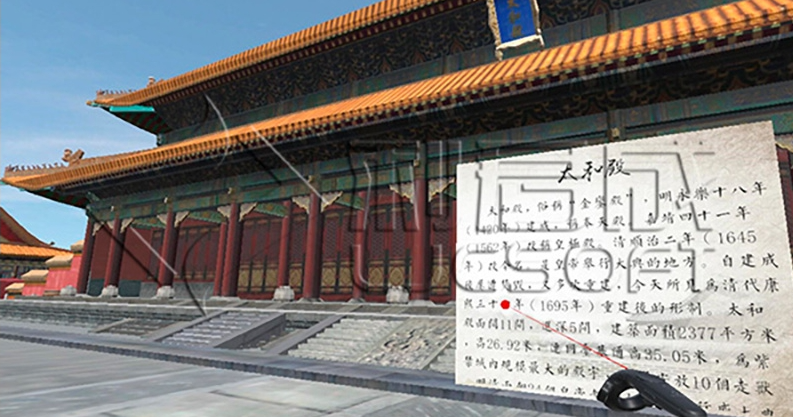 太和殿
太和殿，俗稱"金鑾殿"，明永樂十八年
（1420年）建成，稱奉天殿。嘉靖四十一年
（1562年）改稱皇極殿。清順治二年（1645
年）改今名。是皇帝舉行大典的地方。自建成
後屢遭焚毀，多次重建，今天所見爲清代康
熙三十 年（1695年）重建後的形制。太和
殿面闊11間，進深5間，建築面積2377平方米
，高26.92米，連同臺基通高35.05米，爲紫
禁城內規模最大的殿宇
放10個走獸
利启成
Ucsoft